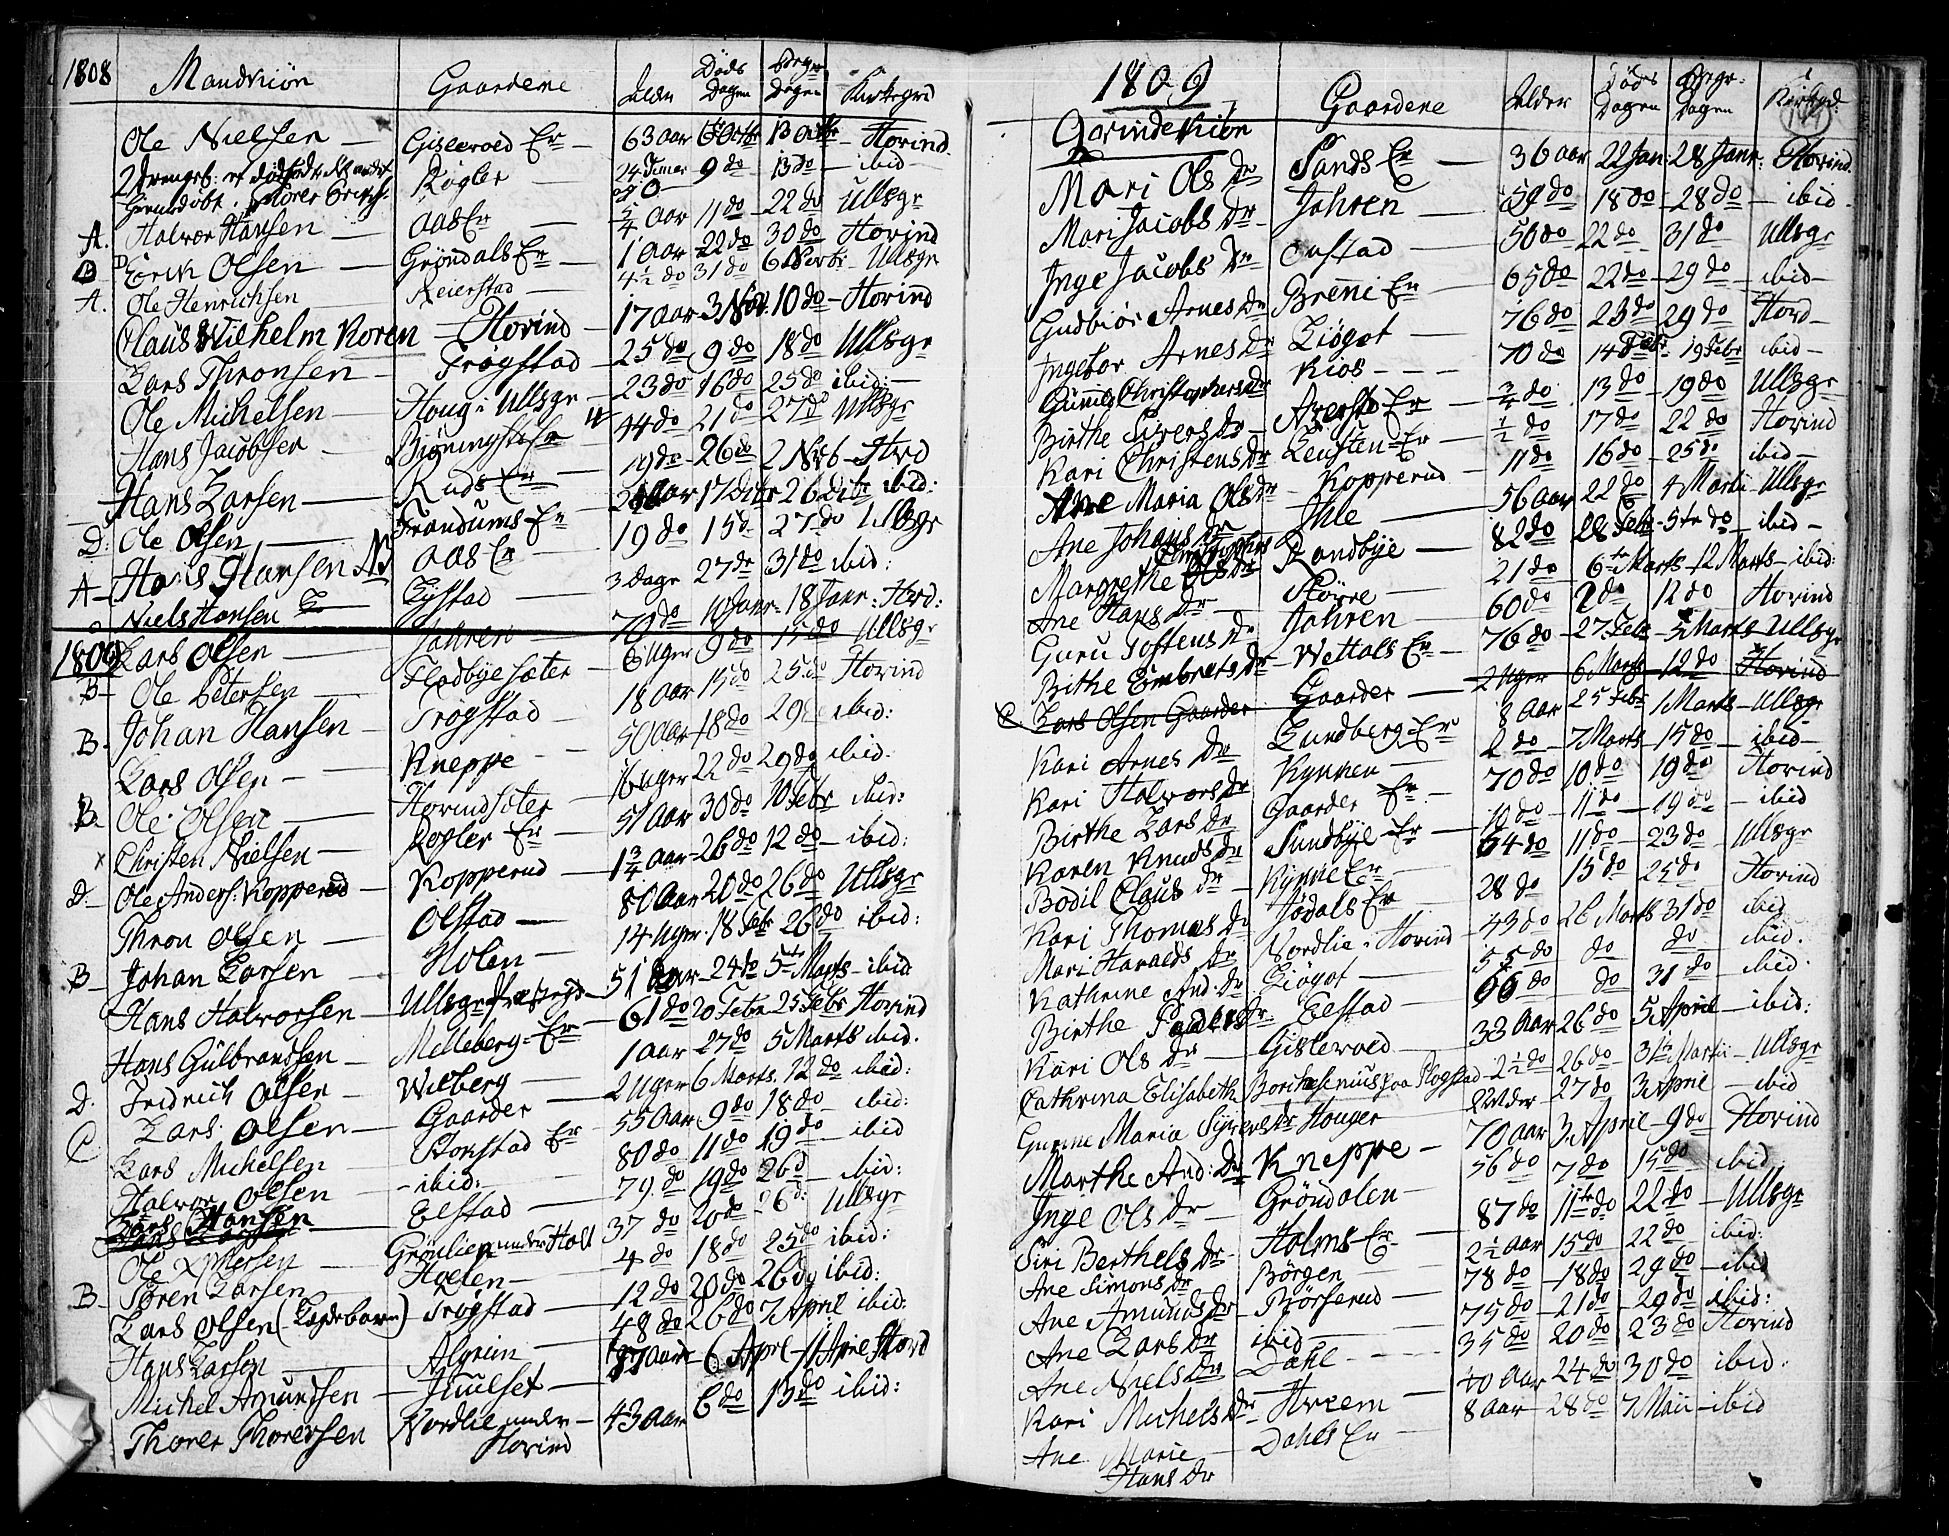 1808 Mandkiön Gaardene Alder Döds Dagen Begr: Dagen Kirkegrd
Ole Nielsen Gislevold Er 63 Aar 13 Octbr Hovind
2 Drengeb: Kogler 24 Timer 9 do 13 do ibid
A. Halvor Hansen Aas Er 5/4 Aar 11 do 22 do Ullsgr
B Erik Olsen Gröndals Er 1 Aar 22 do 30 do Hovind
A. Ole Henrichsen Reierstad 4½ do 31 do 6 Ullsgr
Claus Wilhelm Koren Hovind 17 Aar 3 Nov: 10 do Hovind
Lars Thronsen Trögstad 25 do 9 do 18 do Ullsgr
Ole Michelsen Houg i Ullsgr 23 do 16 do 25 do ibid:
Hans Jacobsen 44 do 21 do 27 do Ullsgr
Hans Larsen Ruds Er 19 do 26 do 2 Hvd
D: Ole Olsen Trandums Er 17 Dcbr 26 Dcbr ibid:
A Hans Hansen Aas Er 19 do 15 do 27 do Ullsgr
Niels Hansen Lystad 3 dage 27 do 31 do ibid:
1809 Lars Olsen Jahren 70 do 10 Janr: 18 Janr: Hovd:
B Ole Petersen Fladbye sæter 6 Uger 9 do 15 do Ullsgr
B. Johan Hansen Trögstad 18 Aar 15 do 25 do Hovind
Lars Olsen Kneppe 50 Aar 18 do 29 ibid:
B. Ole Olsen Hovindsæter 16 Uger 22 do 29 do ibid:
x Christen Nielsen Kogler Er 51 Aar 30 do 10 Febr ibid:
D. Ole Anders: Kopperud Kopperud 1¾ Aar 26 do 12 do ibid:
Thron Olsen Olstad 80 Aar 20 do 26 do Ullsgr
B Johan Larsen Holen 14 Uger 18 Febr 26 do ibid:
Hans Halvorsen Ullsgr Præstegd 51 Aar 24 do 5 Marts ibid
Hans Gulbrandsen Melleberg Er 61 do 20 Febr 25 Febr Hovind
D. Fridrich Olsen Wilberg 1 Aar 27 do 5 Marts ibid.
C Lars Olsen Gaarder 2 Uger 6 Marts 12 do ibid:
Lars Michelsen Er 55 Aar 9 do 18 do ibid:
Halvor Olsen ibid: 80 do 11 do 19 do ibid
Lars Hansen Elstad 79 do 19 do 26 d ibid:
Ole 37 do 20 do 26 d: Ullsgr
B Sören Larsen Hoelen 4 do 18 do 25 do ibid:
Lars Olsen Trögstad 12 do 20 do 26 do ibid:
Hans Larsen Algrim 48 do 26 do 7 April ibid:
Michel Amundsen Juulset 87 Aar 6 Apr. 11 Apr Hovd
Thorer Thorersen Nordlie under Hovind 43 Aar 6 do 13 do ibid:
1809
Qvindekiön Gaardene Alder Döds Dagen Begr: Dagen Kirkegd:
Mari Ols Dr Sands Er 36 Aar 22 Jan: 28 Janr: Hovind
Mari Jacobs Dr Jahren 59 do 18 do 28 do ibid
Inge Jacobs Dr 50 do 22 do 31 do Ullsgr
Gudbiör Arnes Dr Breni Er 65 do 22 do 29 do ibid
Ingebor Arnes Dr Liöget 76 do 23 do 29 do Hovd
Gunild Christophers Dr Kios 70 do 14 Febr 19 Febr ibid
Birthe Sivers Dr Er ¾ do 13 do 19 do Ullsgr
Kari Christens Dr Er ½ do 17 do 22 do Hovind
Ane Maria Ols Dr Kopperud 11 do 16 do 25 do ibid
Ane Johans Dr Ihle 56 Aar 22 do 4 Martii Ullsgr
Margrethe Christophers Dr Randbye 82 do 28 Febr 5te do ibid
Ane Hans Dr Större 21 do 6te Marts 12 Marts ibid:
Guru Tostens Dr Jahren 60 do 2 do 12 do Hovind
Birthe Embrets Dr Wettals Er 76 do 27 Febr 5 Marts Ullsgr
C Lars Olsen Gaarder Gaarder 2 Uger 6 Marts 12 do Hovind
Kari Arnes Dr Lundberg Er 8 Aar 25 Febr 1 Marts Ullsgr
Kari Halvors Dr Kynnen 2 do 7 Marts 15 do ibid
Birthe Lars Dr Gaarder Er 70 do 10 do 19 do Hovind
Karen Knuds Dr Sundbye Er 10 do 11 do 19 do ibid
Bodil Claus Dr Kynne Er 64 do 11 do 23 do Ullsgr
Kari Thomas Dr Jödals Er 28 do 15 do 25 do Hovind
Mari Haralds Dr Nordlie i Hovind 43 do 26 Marts 31 do ibid
Kathrine And: Dr Liöget 55 do do do ibid.
Birthe Paals Dr Elstad 66 do do 31 do ibid:
Kari Ols Dr Gislevold 33 Aar 26 do 5 April ibid:
Cathrina Elisabeth Borchsenius paa 2½ do 26 do 31te Martii Ullsgr
Gunne Maria Syvers Dr Houger 27 do 3 April ibid
Marthe And: Dr Kneppe 70 Aar 3 April 9 do Hovind
Inge Ols Dr Gröndalen 56 do 7 do 15 do ibid
Siri Berthels Dr Holms Er 87 do 11te do 22 do Ullsgr
Ane Simons Dr Börgen 2½ Aar 15 do 22 do ibid:
Ane Amunds Dr Börserud 78 do 18 do 29 do ibid
Ane Lars Dr ibid 75 do 21 do 29 do ibid:
Ane Niels Dr Dahl 35 do 20 do 23 do Hovind
Kari Michels Dr Hveem 40 Aar 24 do 30 do ibid:
Ane Marie Hans Dr Dahls Er 8 Aar 28 do 7 Maii ibid